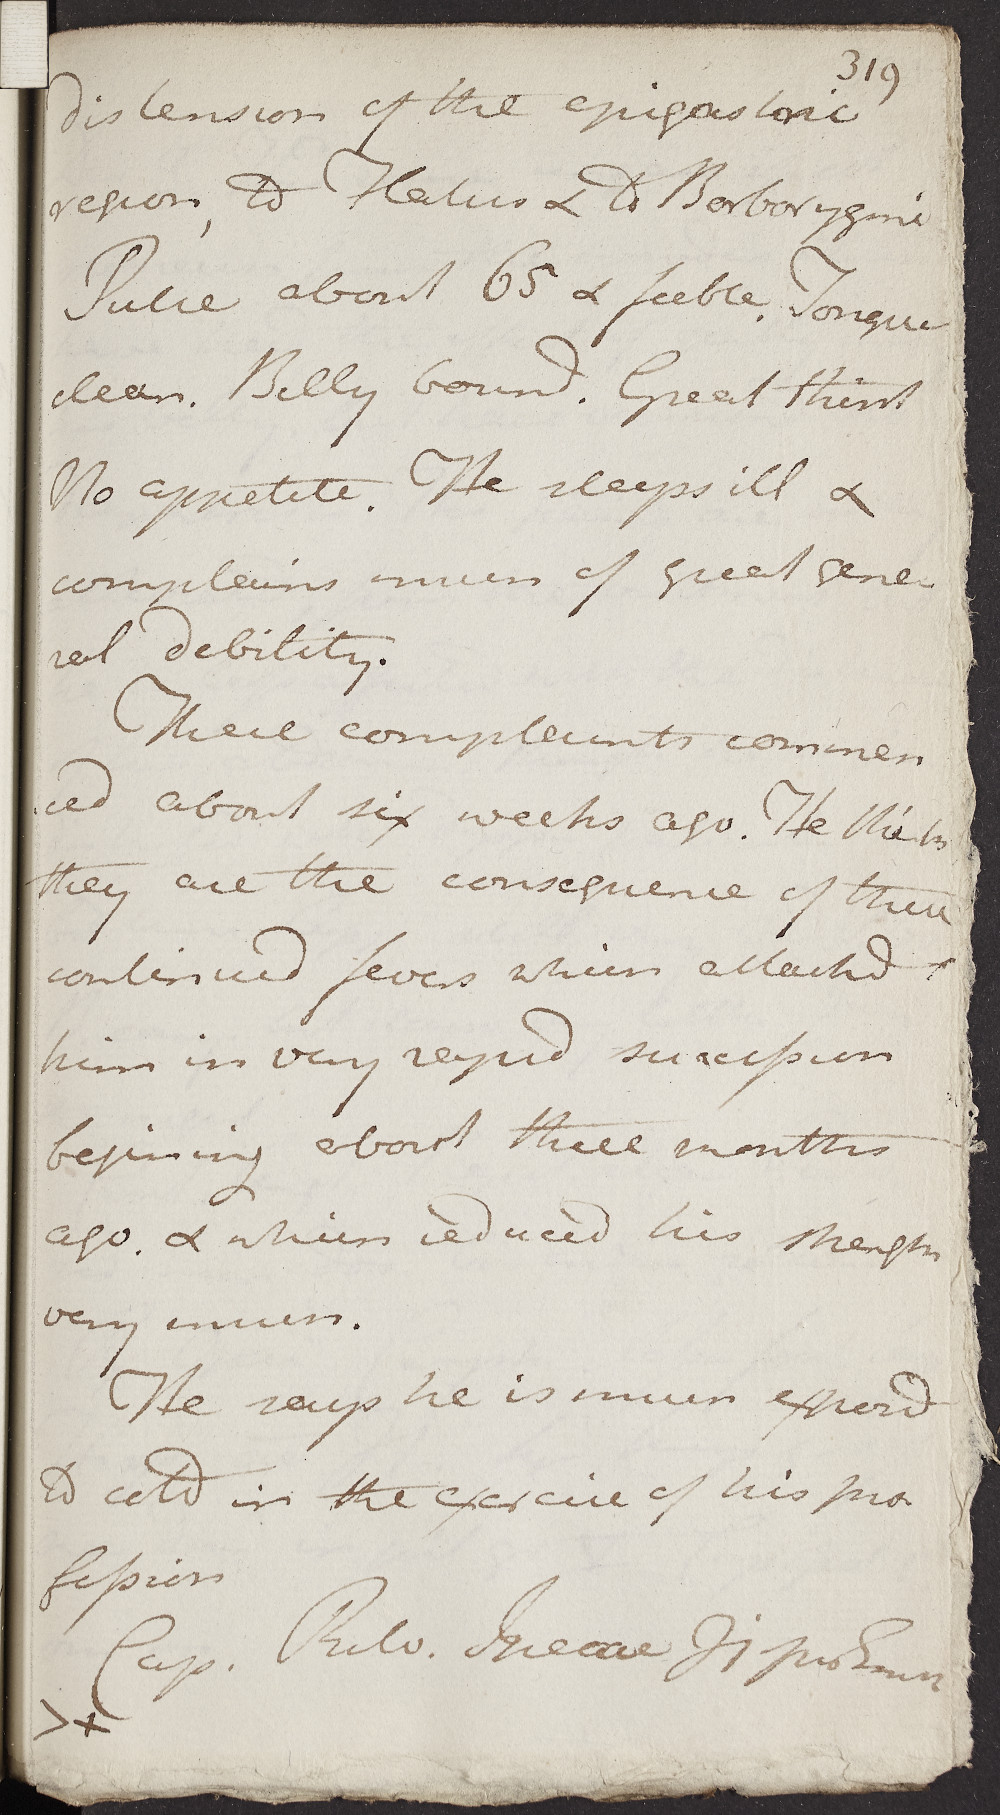 319
distension of the epigastric
region, to Flatus & to Borborygmi
Pulse about 65 & feeble. Tongue
clean. Belly bound. Great thirst
No appetite. He sleeps ill &
complains much of great gene
ral debility.
These complaints commen
ced about six weeks ago. He thinks
they are the consequence of three
continued fevers which attackd
him in very rapid succession
begining about three months
ago. & which reduced his strength
very much.
He says he is much exposd
to cold in the exercise of his pro
fession
Cap. Pulv. Ipecac ℈j pro Emet